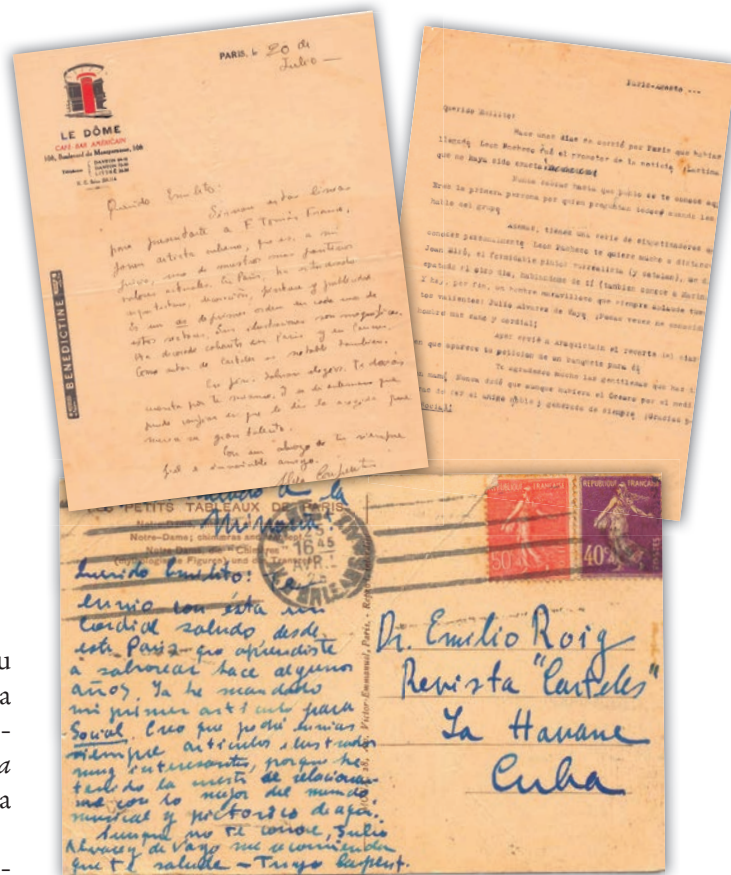 LE DÔME
CAFÉ BAR AMÉRICAIN
108, Boulevard du Montparnasse, 108
BENEDICTINE
PARIS, le 20 de
Julio —
Querido Emilito:
Sirvan estas líneas
para presentarte a F. Tomás
joven artista cubano, que es, a mi
juicio, uno de nuestros más
valores actuales. En París, ha estudiado
arquitectura, decoración, pintura y publicidad.
Es un as de primer orden en cada una de
estas ramas. Sus ilustraciones son magníficas.
Ha decorado cabarets en París y en Cannes.
Como autor de carteles es notable también.
En fin. Sobran elogios. Te darás
cuenta por ti mismo. Y sé de antemano que
puedo confiar en que le des la acogida que
merece su gran talento.
Con un abrazo de tu siempre
fiel e invariable amigo.
Alejo Carpentier
París-Agosto ---
Querido Emilito:
Hace unos días se corrió por París que habías
llegado. León Pacheco fué el promotor de la noticia. ¡Lástima
que no haya sido exacta
Eres la primera persona por quien preguntan todos cuando les
hablo del grupo
Además, tienes una serie de
León Pacheco te quiere mucho a distancia
Joan Miró, el formidable pintor surrealista (y catalán), me
el otro día, hablándome de tí (también conoce a
Y hay, por fin, un hombre maravilloso que siempre
Julio Alvarez de Vayo ¡Pocas veces he conocido
hombre más sano y cordial!
Ayer envié a Araquistain el recorte del
en que aparece tu petición de un banquete para él
Te agradezco mucho las gentilezas que has
mamá. Nunca dudé que aunque hubiera el Océano por el medio
de ser el amigo noble y generoso de siempre ¡Gracias
a la
Minorista
PETITS TABLEAUX DE PARIS
Notre-Dame; chimeras and
Notre-Dame, die "Chimères
16 45
AVR.
REPUBLIQUE FRANÇAISE
50
REPUBLIQUE FRANÇAISE
40
Querido Emilito: Te
envío con ésta un
cordial saludo desde
este París que aprendiste
a saborear hace algunos
años. Ya he mandado
mi primer artículo para
Social. Creo que podré enviar
siempre artículos ilustrados
muy interesantes, porque he
tenido la suerte de relacionar-
me con lo mejor del mundo
musical y pictórico de aquí.
Aunque no te conoce, Julio
Alvarez de Vayo me recomienda
que te salude — Tuyo Carpent.
Av. Victor-Emmanuel, Paris.
Dr. Emilio Roig
Revista "Carteles"
La Havane
Cuba
u
a
-
a
a
-